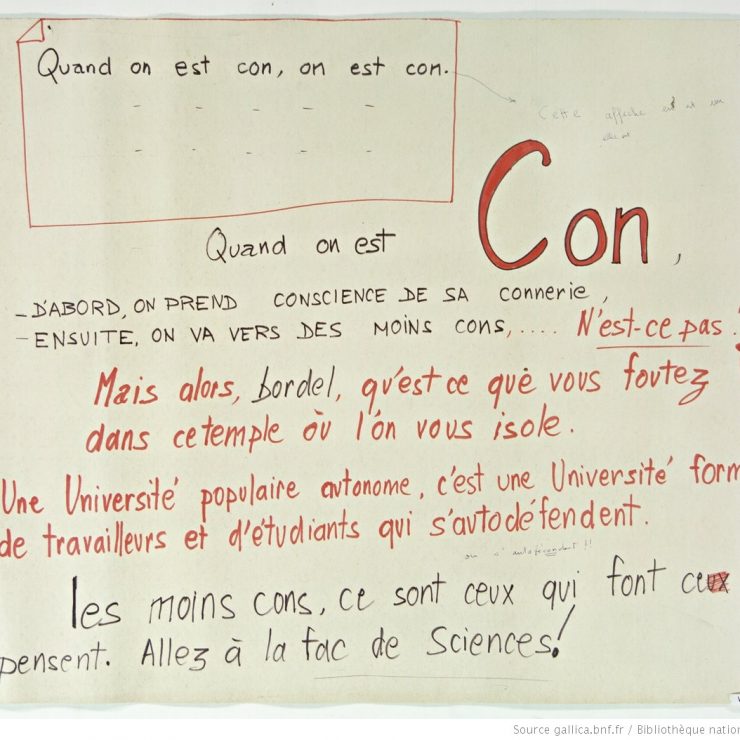 Quand on est con, on est con.
- - - - -
- - - - -
Cette affiche est
Quand on est Con,
- D'ABORD, ON PREND CONSCIENCE DE SA connerie,
- ENSUITE, ON VA VERS DES MOINS CONS, .... N'est-ce pas.
Mais alors, bordel, qu'est ce que vous foutez
dans ce temple où l'ón vous isole.
Une Université populaire autonome, c'est une Université form
de travailleurs et d'étudiants qui s'autodéfendent.
ou s' !!
les moins cons, ce sont ceux qui font ceux
pensent. Allez à la fac de Sciences!
Source gallica.bnf.fr / Bibliothèque nation